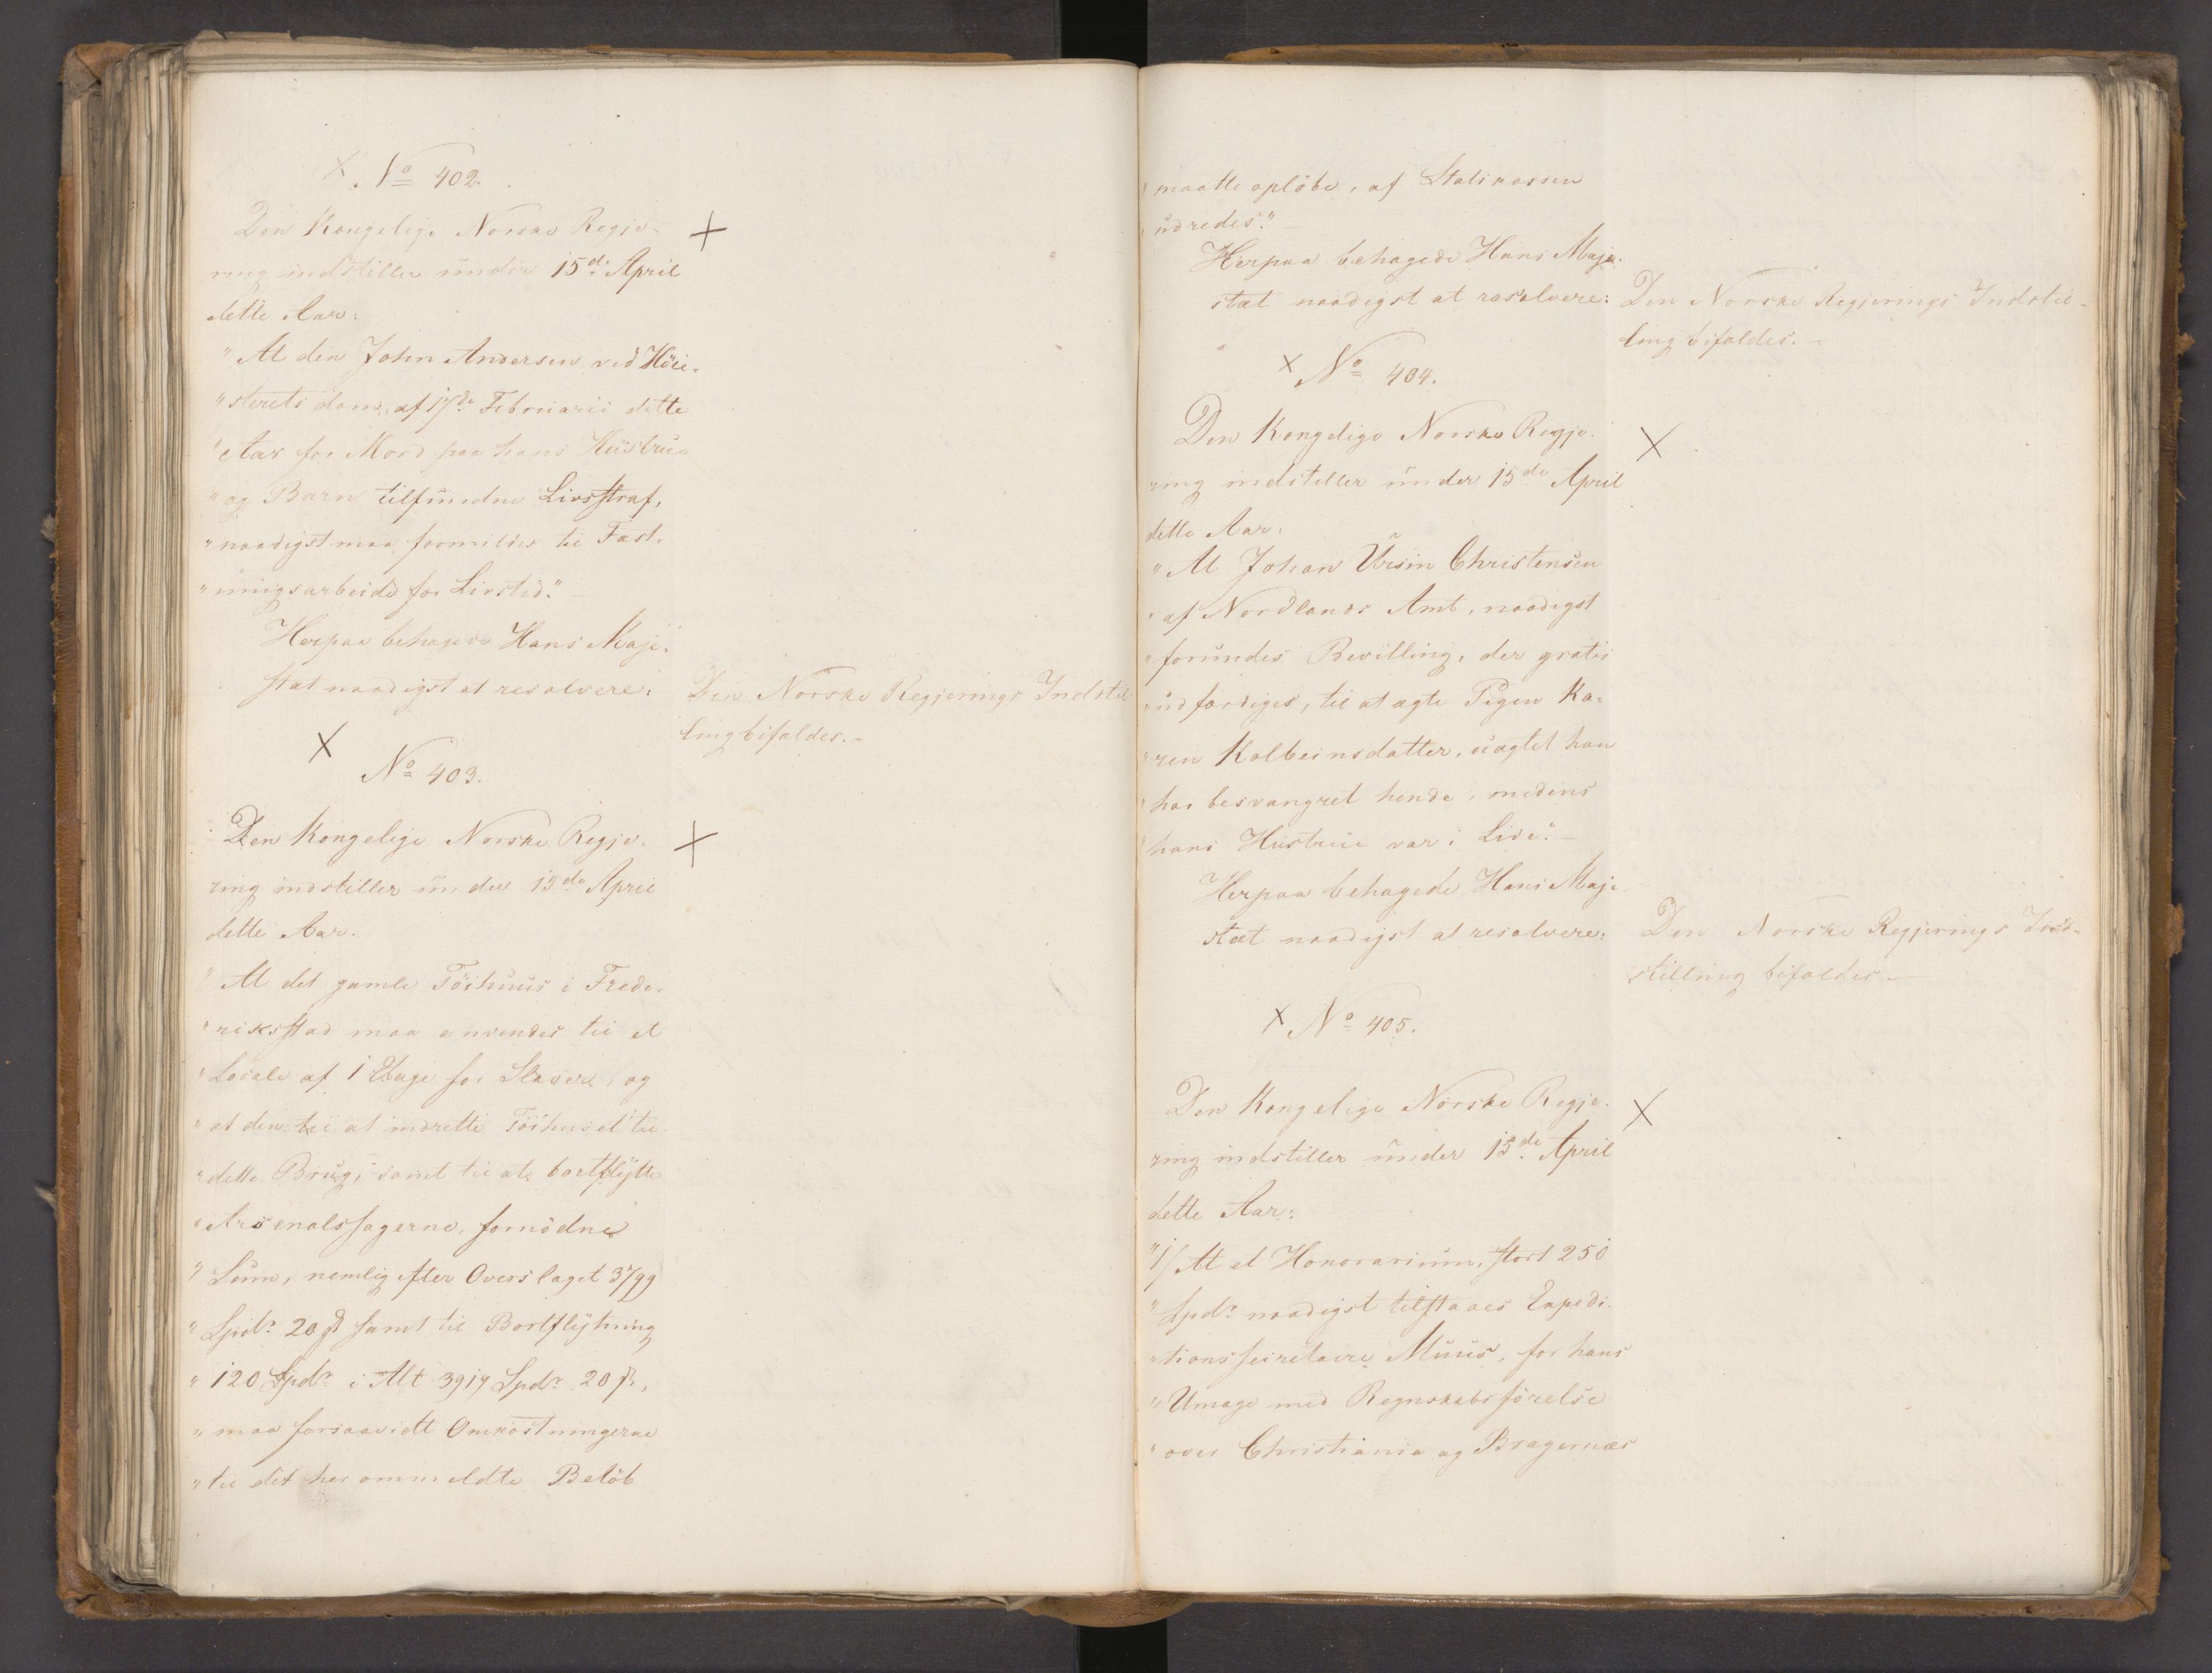 No 402.
Den Kongelige Norske Regje-
ring indstiller under 15de April
dette Aar:
"At den John Andersen ved Höie-
"sterets dom, af 17de Februarii dette
"Aar for Mord paa hans Hustrue
"og Barn tilfundne Livsstraf,
"naadigst maa formildes til Fæst-
"ningsarbeide for Livstid."-
Herpaa behagede Hans Maje-
stæt naadigst at resolvere:
Den Norske Regjerings Indstil
ling bifaldes.-
No 403.
Den Kongelige Norske Regje-
ring indstiller under 15de April
dette Aar.
"At det gamle Töihuus i Frede-
"riksstad maa anvendes til et
"Locale af 1 Etage for Slaver, og
"at den til at indrette Töihuset til
"dette Brug, samt til at bortflytte
"Arsenalssagerne, fornödne
"Sum, nemlig efter Overslaget 3799
"Spdr 20 ß samt til Bortflytning
"120 Spdr i Alt 3919 Spdr 20 ß,
"maa forsaavidt Omkostningerne
"til det her ommeldte Belöb
maatte oplöbe, af Statskassen
udredes."-
Herpaa behagede Hans Maje-
stæt naadigst at resolvere:
Den Norske Regjerings Indstil-
ling bifaldes.-
No 404.
Den Kongelige Norske Regje-
ring indstiller under 15de April
dette Aar:
"At Johan Ursin Christensen
"af Nordlands Amt, naadigst
"forundes Bevilling, der gratis
"udfærdiges, til at ægte Pigen Ka-
"ren Kolbeinsdatter, uagtet han
"har besvangret hende, medens
"hans Hustrue var i Live."-
Herpaa behagede Hans Maje-
stæt naadigst at resolvere:
Den Norske Regjerings Ind-
stilling bifaldes.-
No 405.
Den Kongelige Norske Regje-
ring indstiller under 15de April
dette Aar:
"1/ At et Honorarium, stort 250
"Spdr naadigst tilstaaes Expedi-
"tionssecretaire Muus, for hans
"Umage med Regnskabsförelse
"over Christiania og Bragernæs